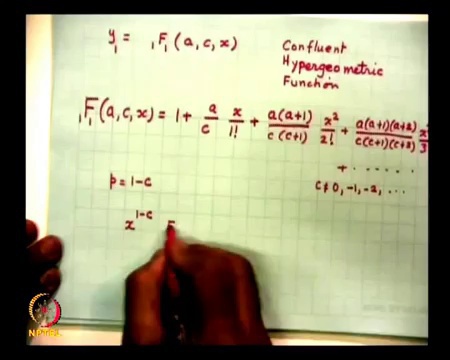 y₁ = ₁F₁(a, c, x)
Confluent
Hypergeometric
Function
₁F₁(a, c, x) = 1 + a/c x/1! + a(a+1)/c(c+1) x²/2! + a(a+1)(a+2)/c(c+1)(c+2) x³/3!
+ ......
c ≠ 0, -1, -2, ...
p = 1-c
x^{1-c} F
NPTEL